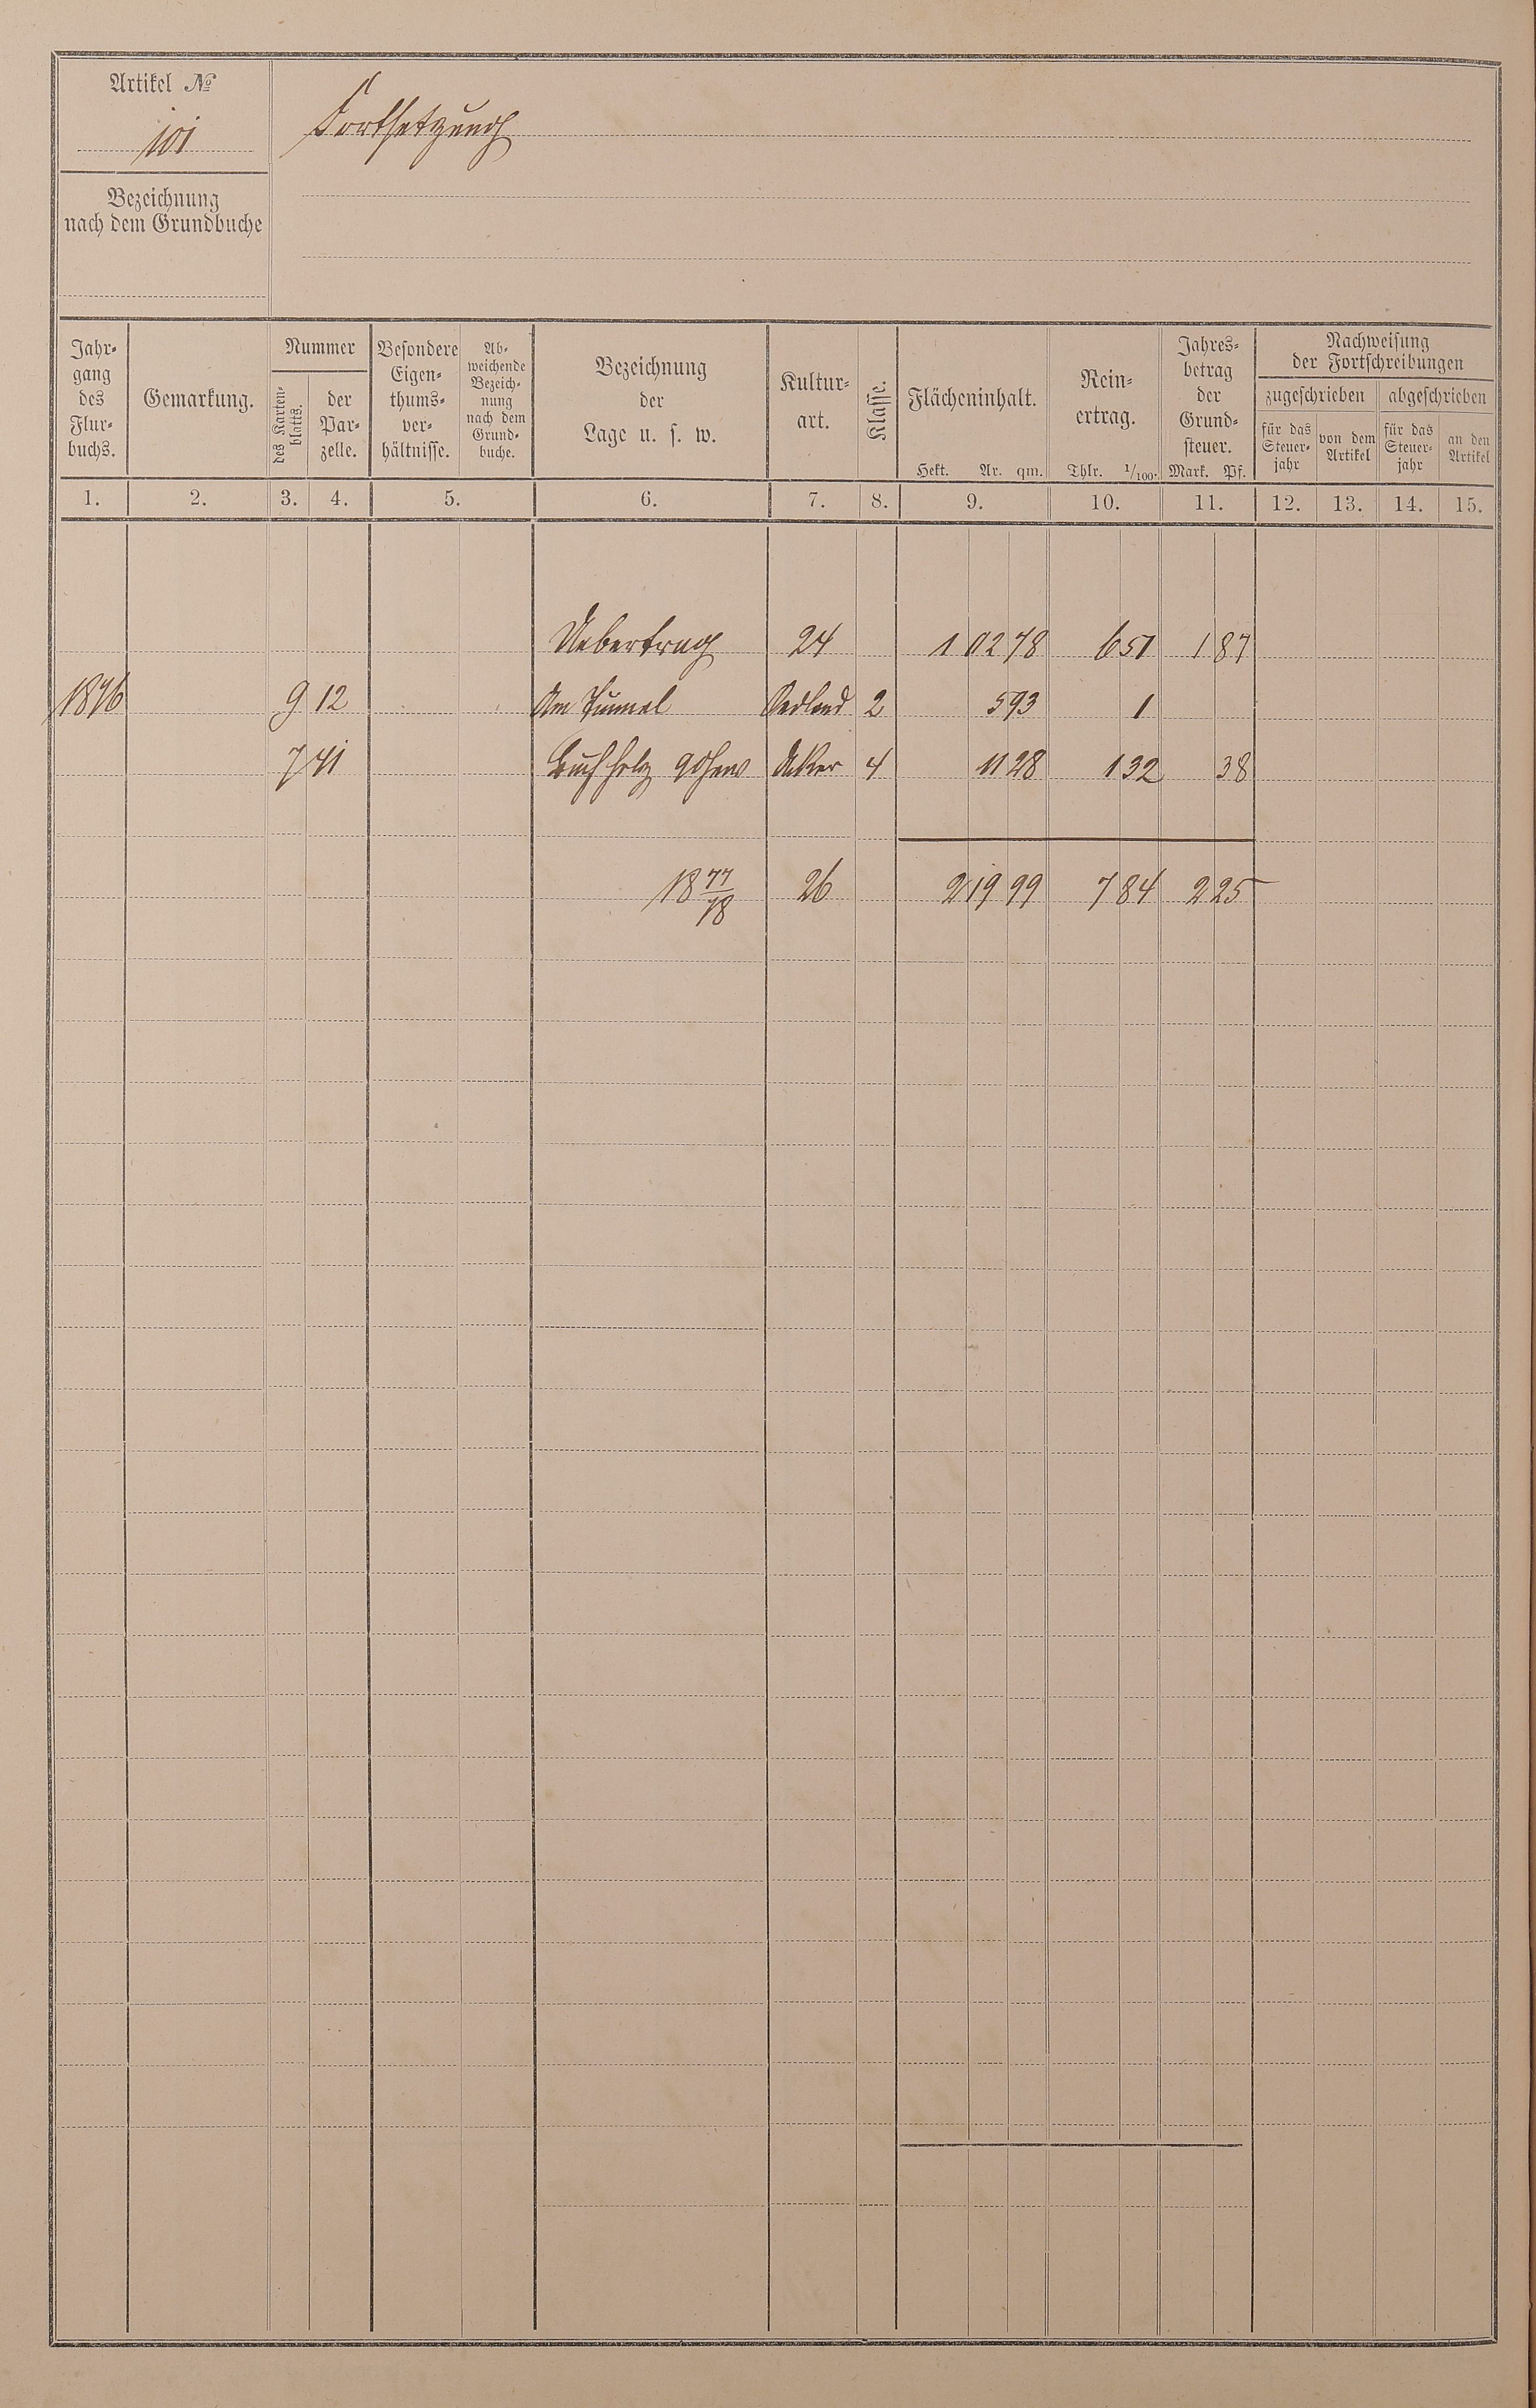 Artikel №
101
Fortsetzung
Bezeichnung
nach dem Grundbuche
Jahr-
gang
des
Flur-
buchs.
Gemarkung.
Nummer
des Karten-
blatts.
der
Par-
zelle.
Besondere
Eigen-
thums-
ver-
hältnisse.
Ab-
weichende
Bezeich-
nung
nach dem
Grund-
buche.
Bezeichnung
der
Lage u. s. w.
Kultur-
art.
Klasse.
Flächeninhalt.
Hekt. Ar. qm.
Rein-
ertrag.
Thlr. 1/100.
Jahres-
betrag
der
Grund-
steuer.
Mark. Pf.
Nachweisung
der Fortschreibungen
zugeschrieben abgeschrieben
für das
Steuer-
jahr
von dem
Artikel
für das
Steuer-
jahr
an den
Artikel
1. 2. 3. 4. 5. 6. 7. 8. 9. 10. 11. 12. 13. 14. 15.
Uebertrag 24 1 02 78 6 51 1 87
1876 9 12 Am Tunnel Oedland 2 5 93 1
7 41 Buchholz Acker 4 11 28 1 32 38
18 77/78 26 2 19 99 7 84 2 25